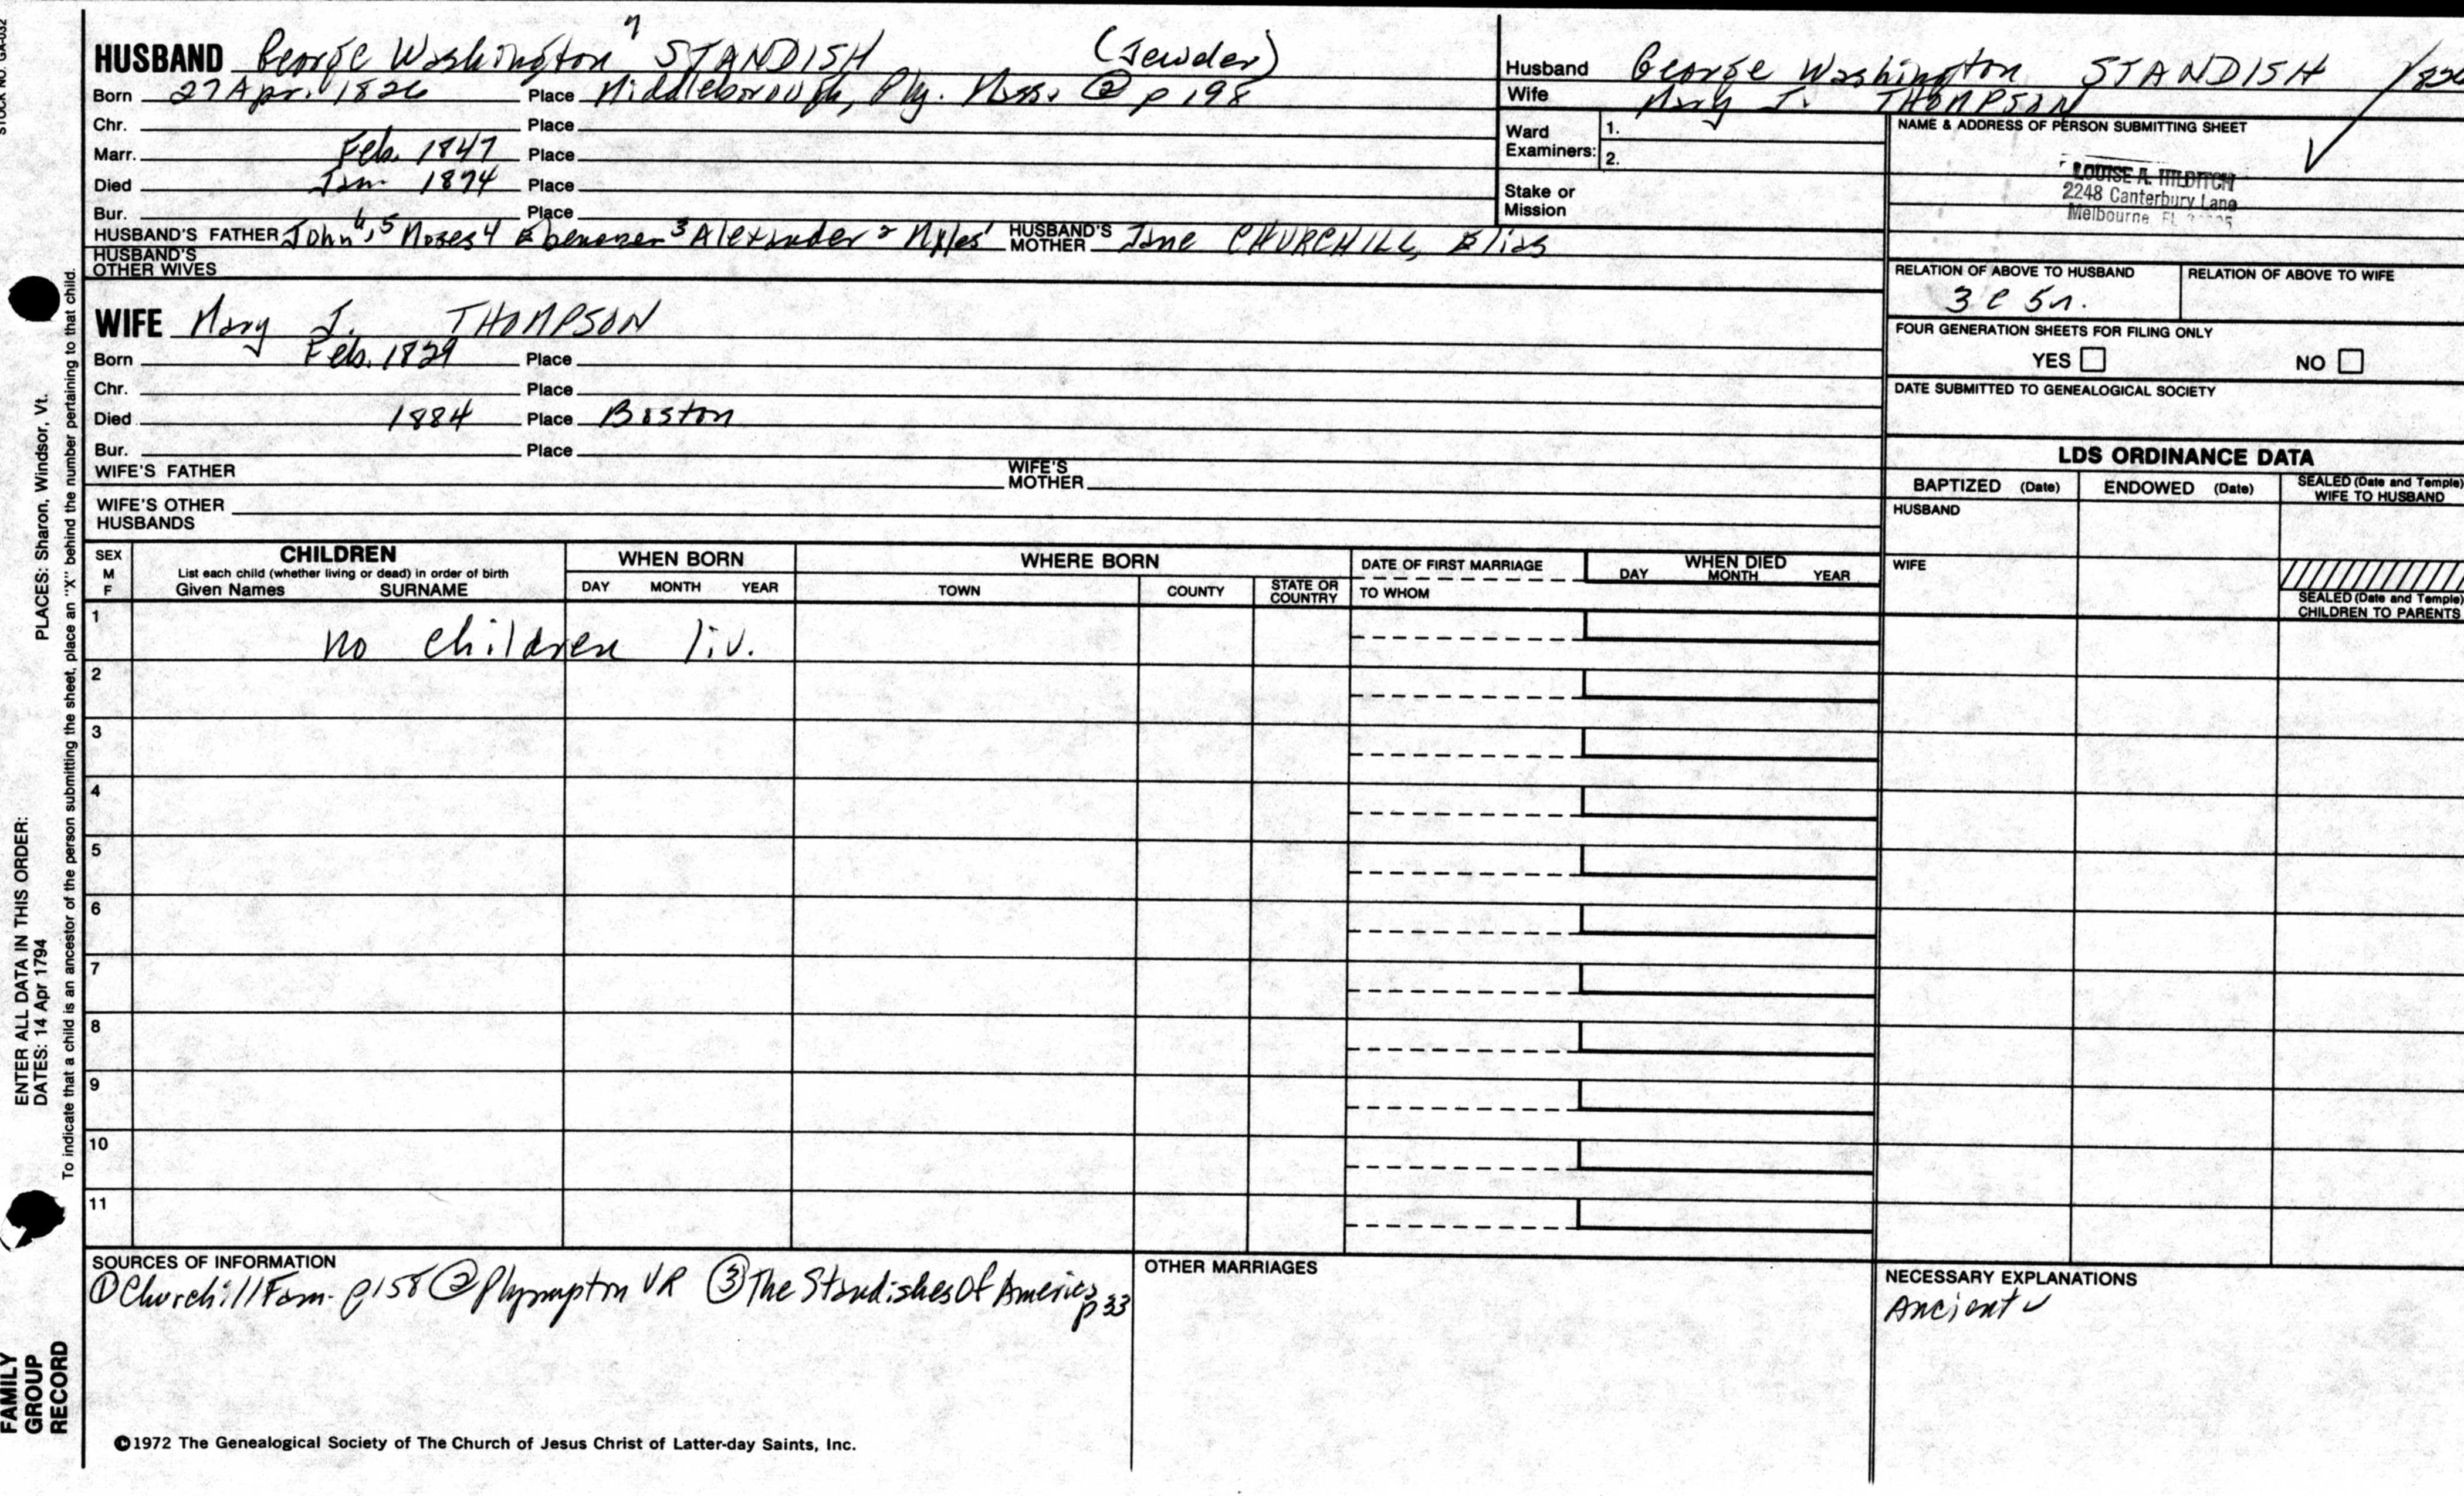 STOCK NO. GA-032
HUSBAND George Washington 7 STANDISH (Jewder)
Born 27 Apr. 1826 Place Middleborough, Ply. Mass. @ p 198
Chr. Place
Marr. Feb. 1847 Place
Died Jan 1874 Place
Bur. Place
HUSBAND'S FATHER John 6,5 Moses 4 Ebenezer 3 Alexander 2 Myles 1 HUSBAND'S MOTHER Jane CHURCHILL, Elias
HUSBAND'S OTHER WIVES
WIFE Mary J. THOMPSON
Born Feb. 1829 Place
Chr. Place
Died 1884 Place Boston
Bur. Place
WIFE'S FATHER WIFE'S MOTHER
WIFE'S OTHER HUSBANDS
Husband George Washington STANDISH
Wife Mary J. THOMPSON
Ward Examiners: 1.
2.
Stake or Mission
NAME & ADDRESS OF PERSON SUBMITTING SHEET
LOUISE A. HILDITCH
2248 Canterbury Lane
Melbourne, FL
RELATION OF ABOVE TO HUSBAND RELATION OF ABOVE TO WIFE
3 C 5r.
FOUR GENERATION SHEETS FOR FILING ONLY
YES NO
DATE SUBMITTED TO GENEALOGICAL SOCIETY
LDS ORDINANCE DATA
BAPTIZED (Date) ENDOWED (Date) SEALED (Date and Temple) WIFE TO HUSBAND
HUSBAND
WIFE
SEALED (Date and Temple) CHILDREN TO PARENTS
SEX M F
CHILDREN
List each child (whether living or dead) in order of birth
Given Names SURNAME
WHEN BORN
DAY MONTH YEAR
WHERE BORN
TOWN COUNTY STATE OR COUNTRY
DATE OF FIRST MARRIAGE
TO WHOM
WHEN DIED
DAY MONTH YEAR
1 no children liv.
2
3
4
5
6
7
8
9
10
11
SOURCES OF INFORMATION
① Churchill Fam. p158 ② Plympton VR ③ The Standishes Of America p 33
OTHER MARRIAGES
NECESSARY EXPLANATIONS
Ancient ✓
©1972 The Genealogical Society of The Church of Jesus Christ of Latter-day Saints, Inc.
ENTER ALL DATA IN THIS ORDER:
DATES: 14 Apr 1794 PLACES: Sharon, Windsor, Vt.
To indicate that a child is an ancestor of the person submitting the sheet, place an "X" behind the number pertaining to that child.
FAMILY
GROUP
RECORD